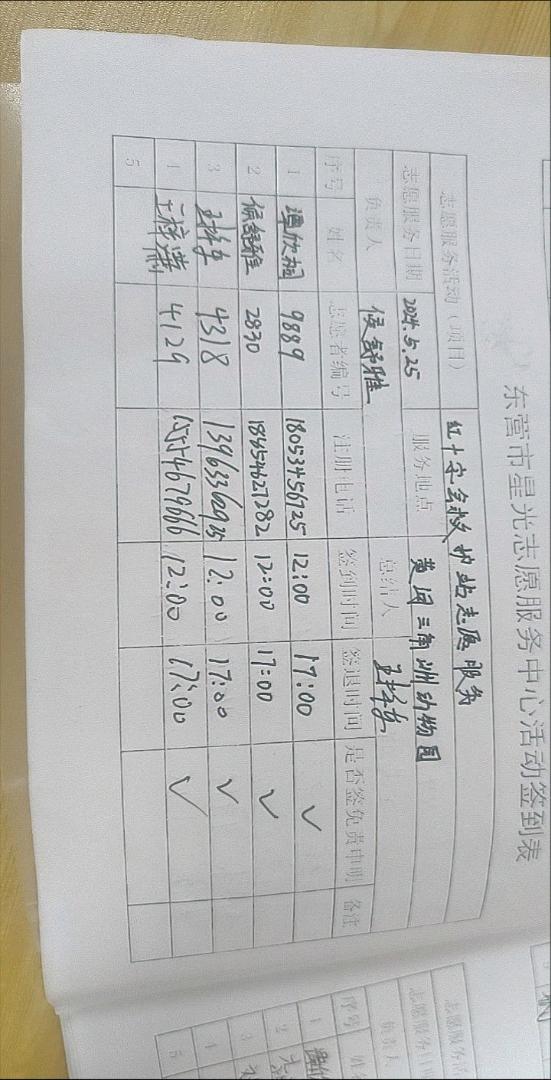 东营市星光志愿服务中心活动签到表
志愿服务活动(项目) 红十字会救护站志愿服务
志愿服务日期 2024.5.25 服务地点 黄河三角洲动物园
负责人 侯舒雅 总结人
序号 姓名 志愿者编号 注册电话 签到时间 签退时间 是否签免责申明 备注
1 谭欣桐 9889 18053456725 12:00 17:00 ✓
2 侯舒雅 2830 18854627282 12:00 17:00 ✓
3 4318 12:00 17:00 ✓
4 4129 15554679666 12:00 17:00 ✓
5
志愿服务活
志愿服务日
负责人
序号 姓
1
2
3
4
5